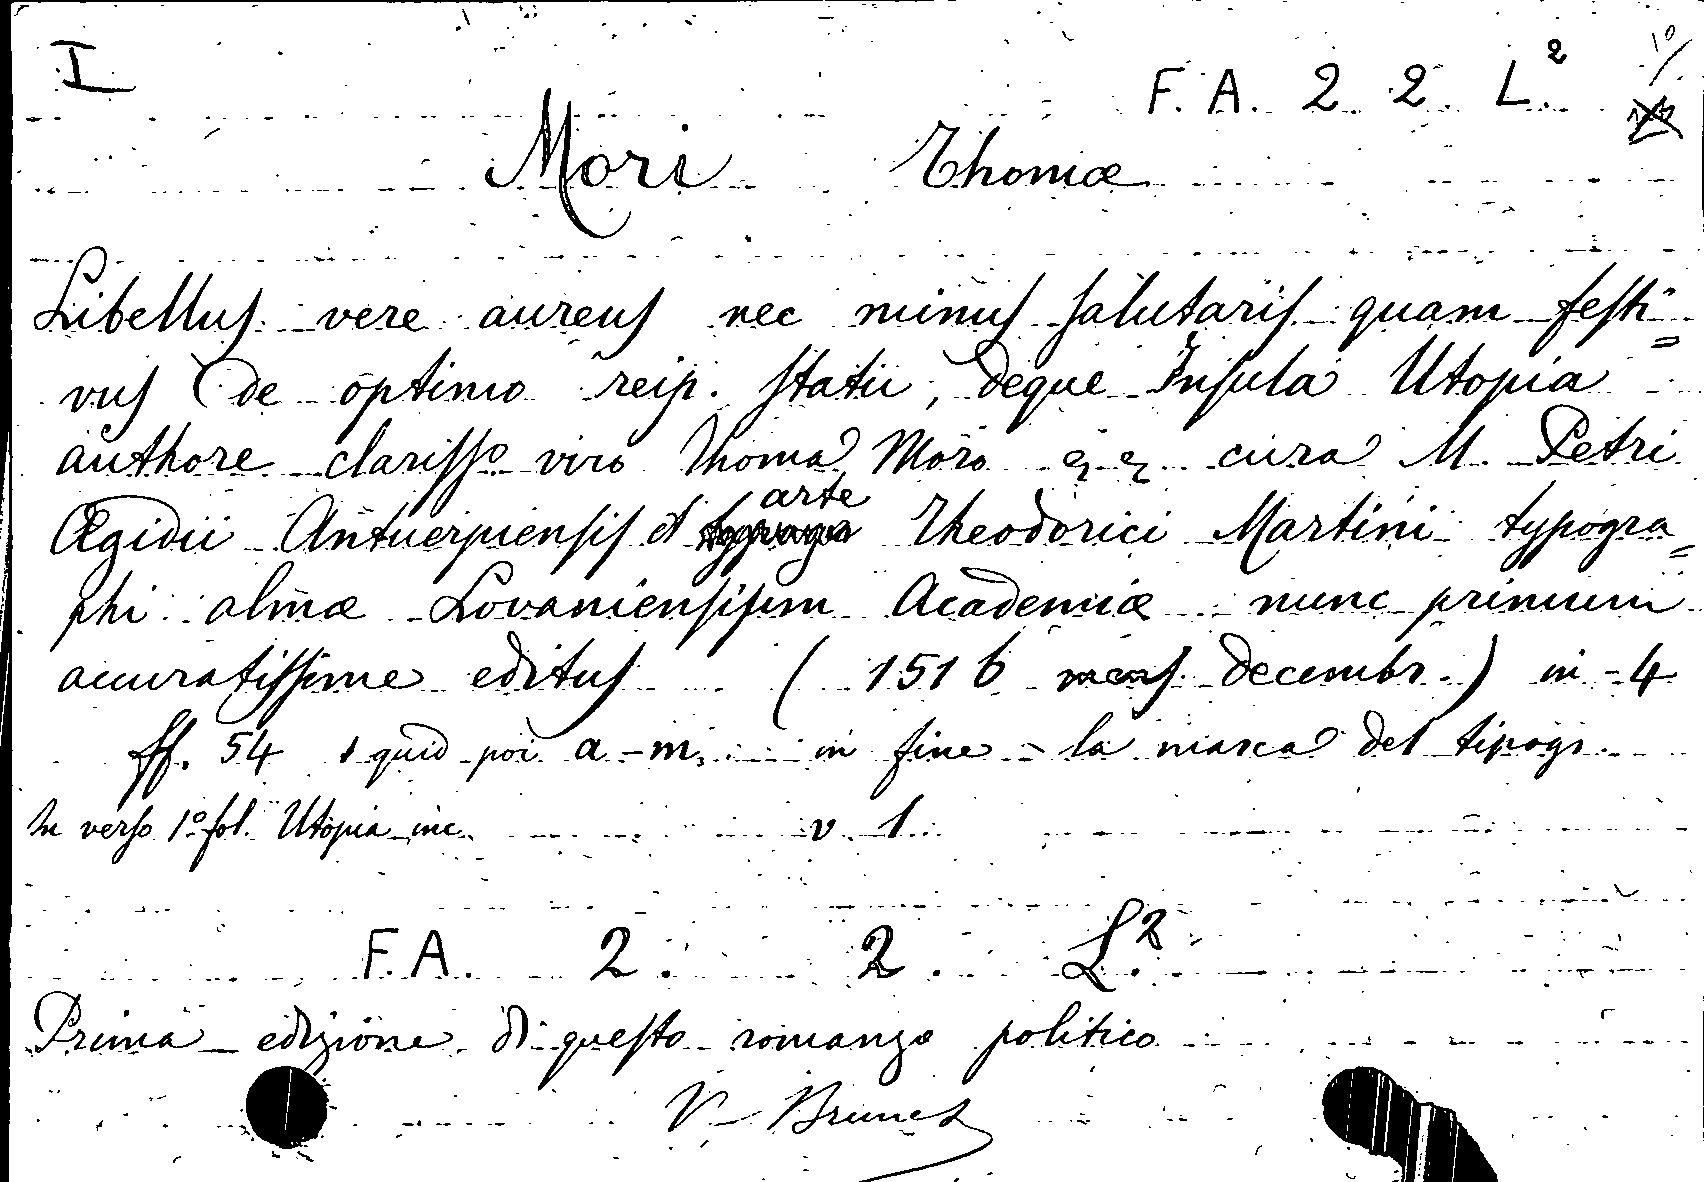 I
F. A. 2 2. L.²
Mori Thomæ
Libellus vere aureus nec minus salutaris quam festi=
vus de optimo reip. statu, deque Insula Utopia
authore clarissº viro Thoma Moro cura M. Petri
Ægidii Antuerpiensis et arte Theodorici Martini typogra=
phi almæ Lovaniensium Academiæ nunc primum
accuratissime editus (1516 mens. decembr.) in-4
ff. 54 poi a-m, in fine la marca del tipogr.
In verso 1º fol. Utopia inc. v. 1.
F. A. 2. 2. L.²
Prima edizione di questo romanzo politico
V. Brunet